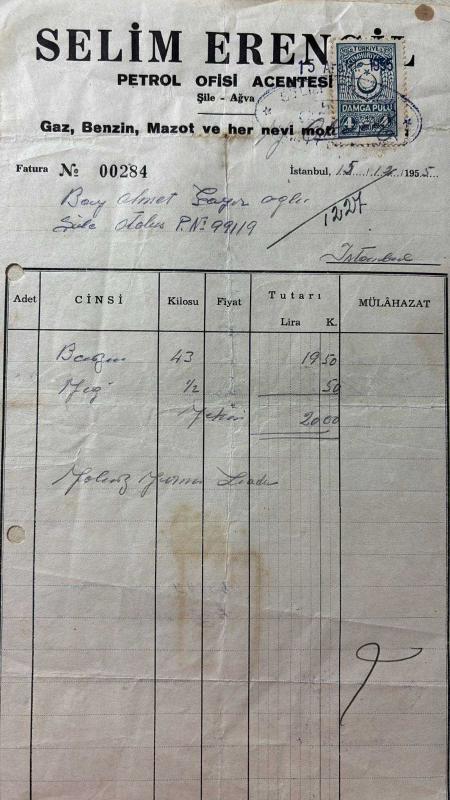 SELİM EREN
PETROL OFİSİ ACENTESİ
Şile - Ağva
Gaz, Benzin, Mazot ve her nevi
TÜRKİYE
CUMHURİYETİ
DAMGA PULU
15 1955
Fatura № 00284
İstanbul, 15 / 12 / 1955
Bay Ahmet oglu
Şile P. № 99119
1227
İstanbul
Adet CİNSİ Kilosu Fiyat Tutarı MÜLÂHAZAT
Lira K.
Benzin 43 19 50
Yağ ½ 50
Yekün 20 00
Yalnız Yirmi Liradır